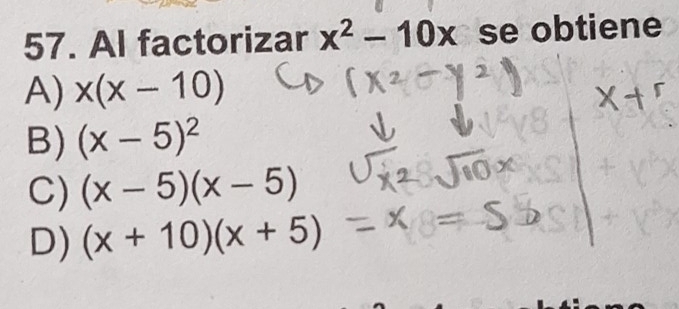 57. Al factorizar x² – 10x se obtiene
A) x(x – 10)
B) (x – 5)²
C) (x – 5)(x – 5)
D) (x + 10)(x + 5)
(x² - y²)
↓ ↓
√x² √10x
= x = 5
x +